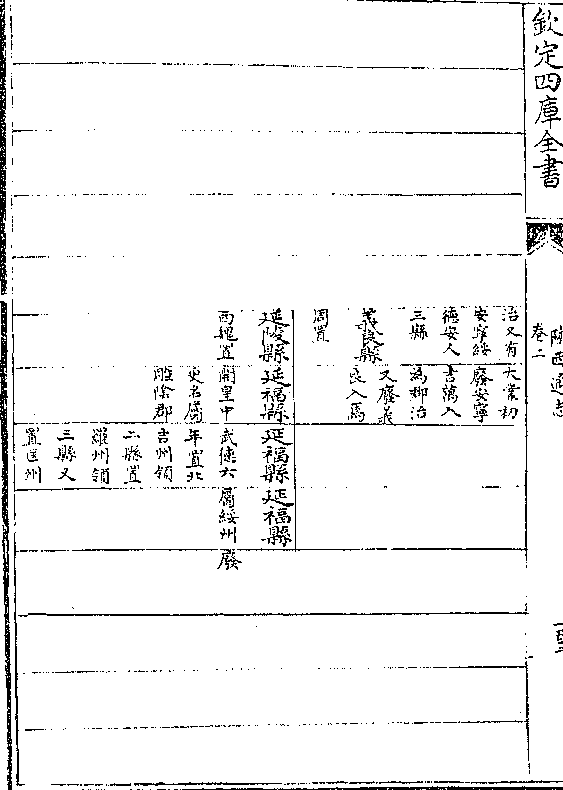 欽定四庫全書
陝西通志
卷二
治又有
安寧綏
德安人
三縣
義良縣
周置
大業初
廢安寧
吉萬入
為柳治
又廢義
良入焉
延陵縣
西魏置
延福縣
開皇中
更名屬
雕陰郡
延福縣
武德六
年置北
吉州領
二縣置
羅州領
三縣又
置匡州
延福縣
屬綏州
廢